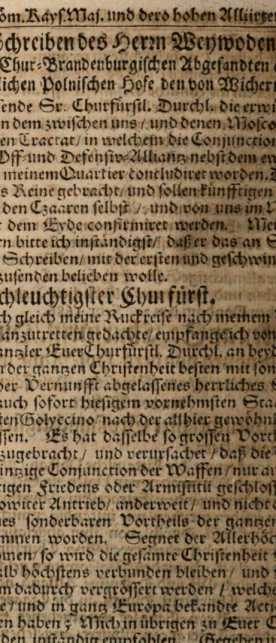 öm. Kays. Maj. und dero hohen Alliirte
chreiben des Herrn Weywoden
Chur-Brandenburgischen Abgesandten
lichen Polnischen Hofe den von Wicher
ende Sr. Churfürstl. Durchl. die erw
n dem zwischen uns / und denen Mosco
en Tractat / in welchem die Conjunctio
Off- und Defensiv-Alliantz nebst dem ew
meinem Quartier concludiret worden.
s Reine gebracht / und sollen künfftigen
den Czaaren selbst / und von uns im
t dem Eyde confirmiret werden. Mei
n bitte ich inständigst / daß er das an S
Schreiben / mit der ersten und geschwin
zusenden belieben wolle.
chleuchtigster Churfürst.
ch gleich meine Ruckreise nach meinem
anzutretten gedachte / empfange ich von
antzler Euer Churfürstl. Durchl. an beyd
r der gantzen Christenheit besten mit son
her Vernunfft abgelassenes herrliches
auch sofort hiesigem vornehmsten Staa
ten Golyecino / nach der allhier gewöhn
ssen. Es hat dasselbe so grossen Vort
zugebracht / und verursachet / daß die
intzige Conjunction der Waffen / nur a
igen Friedens oder Armistitii geschloss
owiter Antrieb / anderweit / und nicht
nes sonderbaren Vortheils der gantzen
nmen worden. Segnet der Allerhöc
men / so wird die gesamte Christenheit
lb höchstens verbunden bleiben / und
m dadurch vergrössert werden / welche
e / und in gantz Europa bekandte Acti
en haben; Mich in übrigen zu Euer
den inständig empfohlen. Gegeben